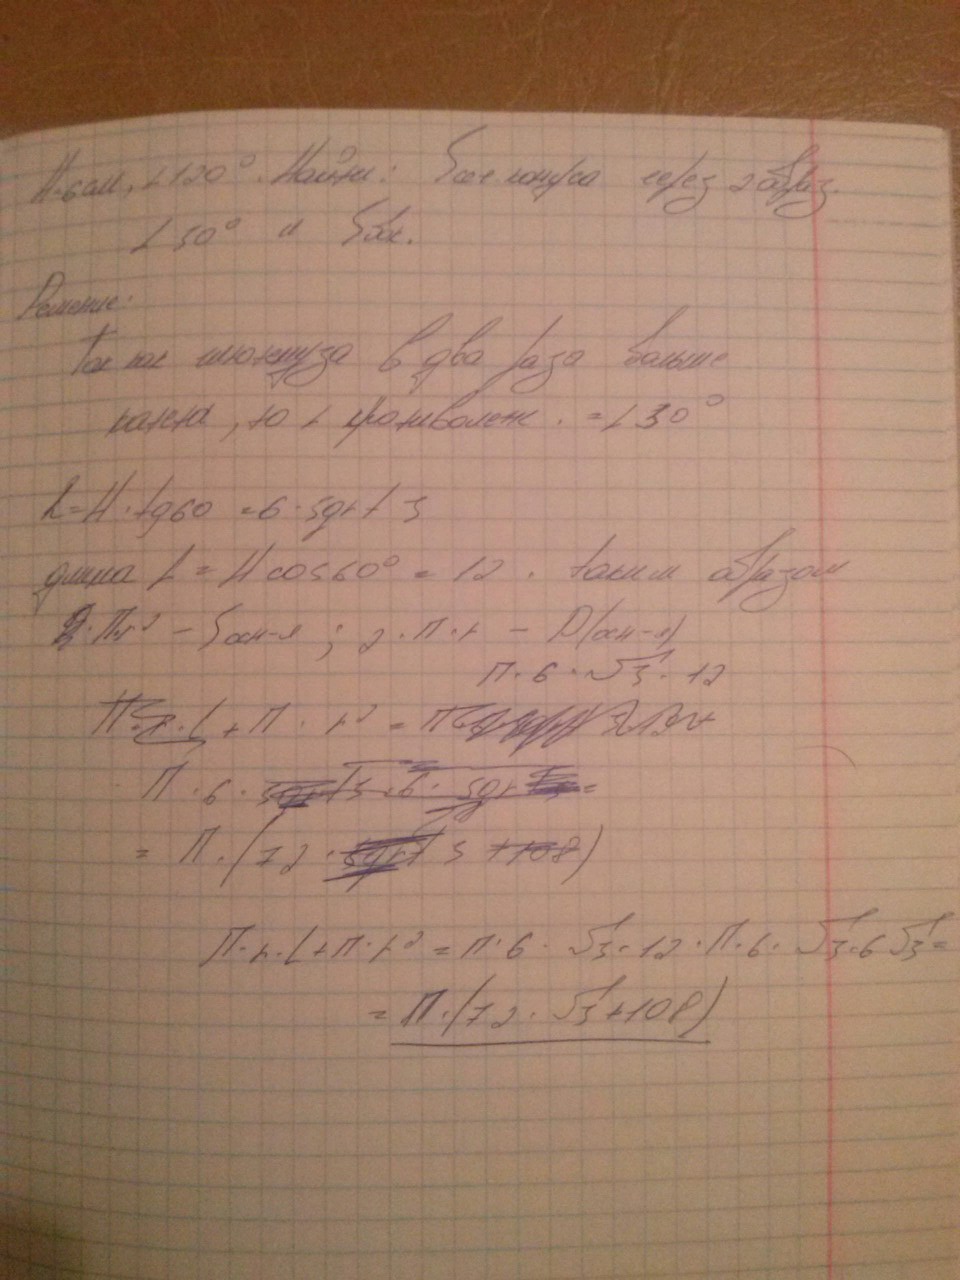 H=6см, ∠120°. Найти: Sсеч. конуса через 2 образ.
∠30° и Sбок.
Решение:
Так как гипотенуза в два раза больше
катета, то ∠ противолеж. = ∠30°
R=H·tg60 = 6·sqrt 3
длина L = H cos60° = 12. таким образом
П·r² - Sосн-я; 2·П·r - D(осн-я)
П·6·√3·12
·L + П·r² = П
П·6·
= П·(72· 3 +108)
П·r·L+П·r² = П·6·√3·12·П·6·√3·6√3 =
= П·(72·√3+108)